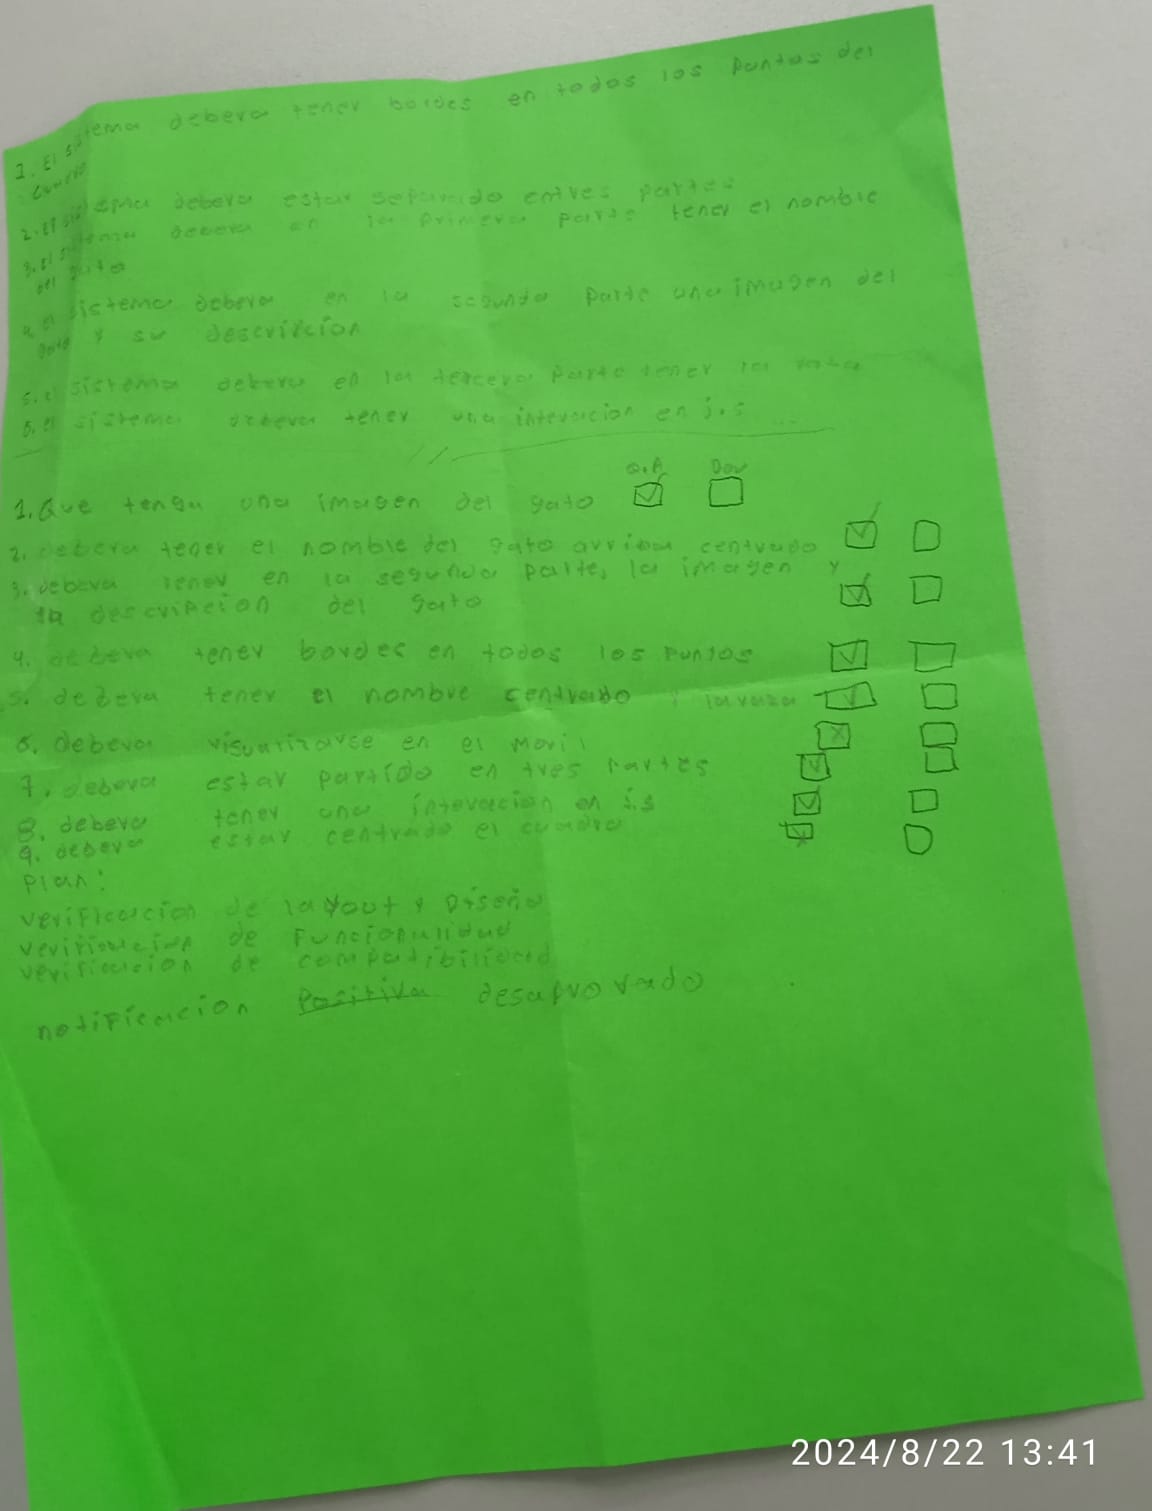 1. El sistema debera tener bordes en todos los puntos del
cuadro
2. El sistema debera estar separado entres partes
3. El sistema debera en la primera parte tener el nombre
del gato
4. el sistema debera en la segunda parte una imagen del
gato y su descrircion
5. el sistema debera en la tercera parte tener la raza
6. el sistema debera tener una interacion en j.s
Q.A Dev
1. Que tenga una imagen del gato
2. debera tener el nombre del gato arriba centrado
3. debera tener en la segunda parte, la imagen y
la descripcion del gato
4. debera tener bordes en todos los puntos
5. debera tener el nombre centrado y la raza
6. debera visualizarse en el movil
7. debera estar partido en tres partes
8. debera tener una interacion en j.s
9. debera estar centrado el cuadro
Plan:
verificacion de layout y Diseño
verificacion de Funcionalidad
verificacion de compatibilidad
notificacion Positiva desaprovado
2024/8/22 13:41